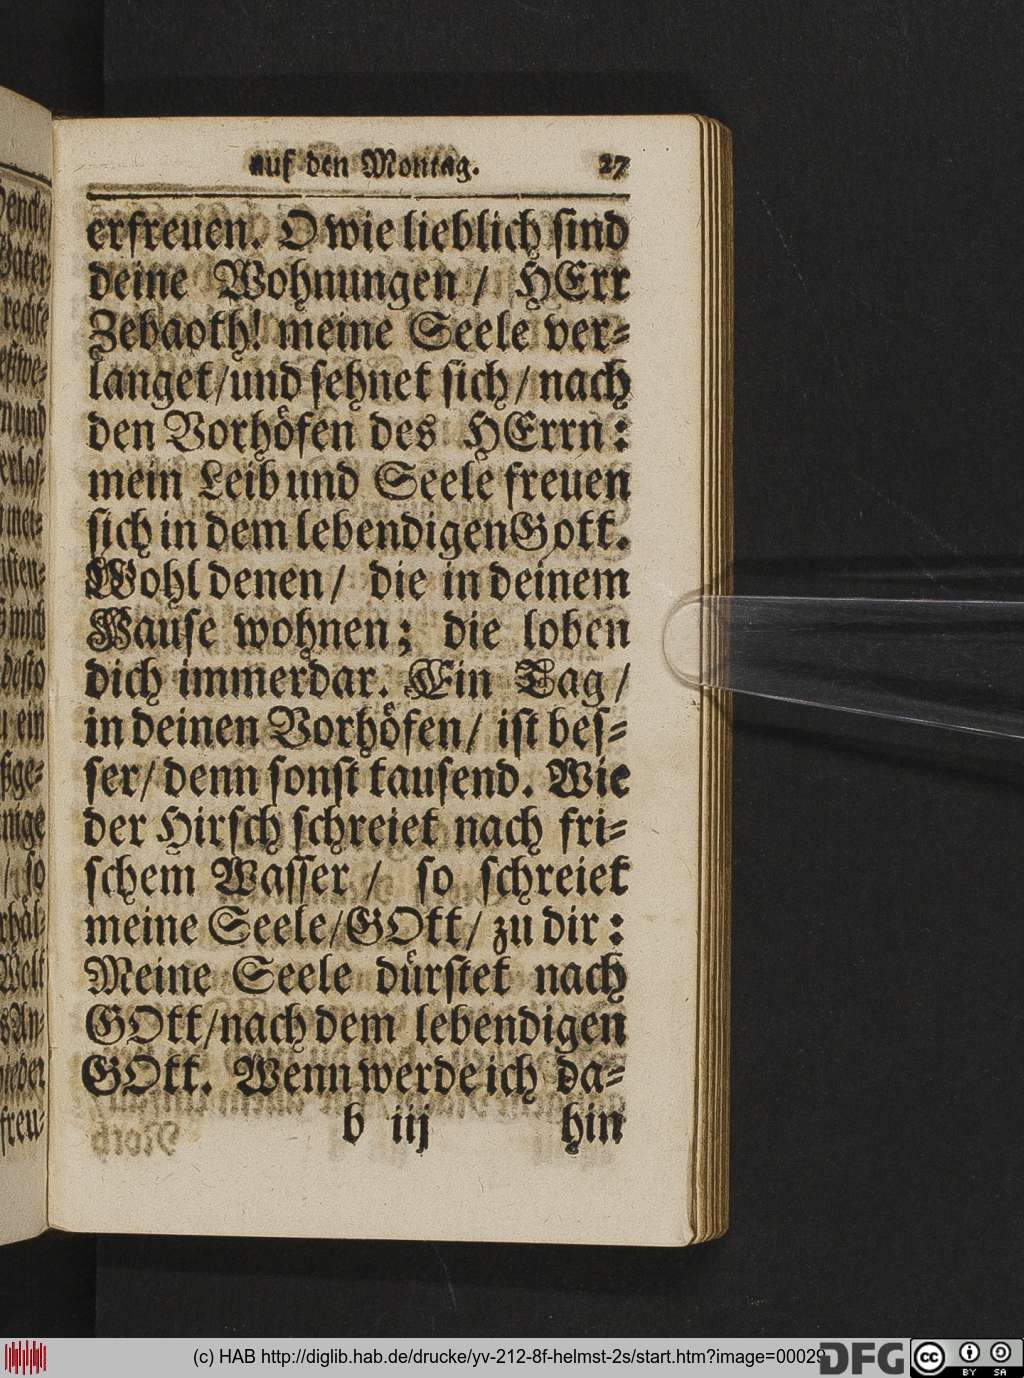 auf den Montag. 27
erfreuen. O wie lieblich sind
deine Wohnungen / HErr
Zebaoth! meine Seele ver-
langet/und sehnet sich/nach
den Vorhöfen des HErrn:
mein Leib und Seele freuen
sich in dem lebendigen Gott.
Wohl denen/ die in deinem
Hause wohnen; die loben
dich immerdar. Ein Tag/
in deinen Vorhöfen/ ist bes-
ser/ denn sonst tausend. Wie
der Hirsch schreiet nach fri-
schem Wasser / so schreiet
meine Seele/GOtt/ zu dir:
Meine Seele dürstet nach
GOtt/nach dem lebendigen
GOtt. Wenn werde ich da-
b iij hin
(c) HAB http://diglib.hab.de/drucke/yv-212-8f-helmst-2s/start.htm?image=00029
DFG
cc BY SA